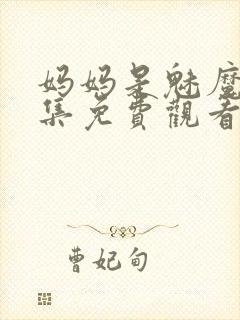 妈妈是魅魔
集免費觀看
曹妃甸